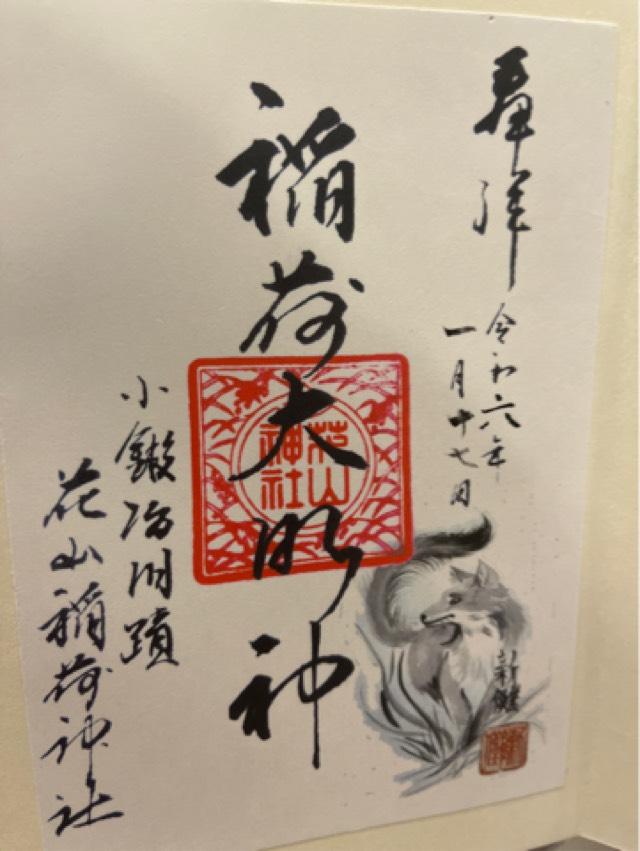 奉拝
令和六年
一月十七日
稲荷大明神
花山
神社
小鍛冶旧蹟
花山稲荷神社